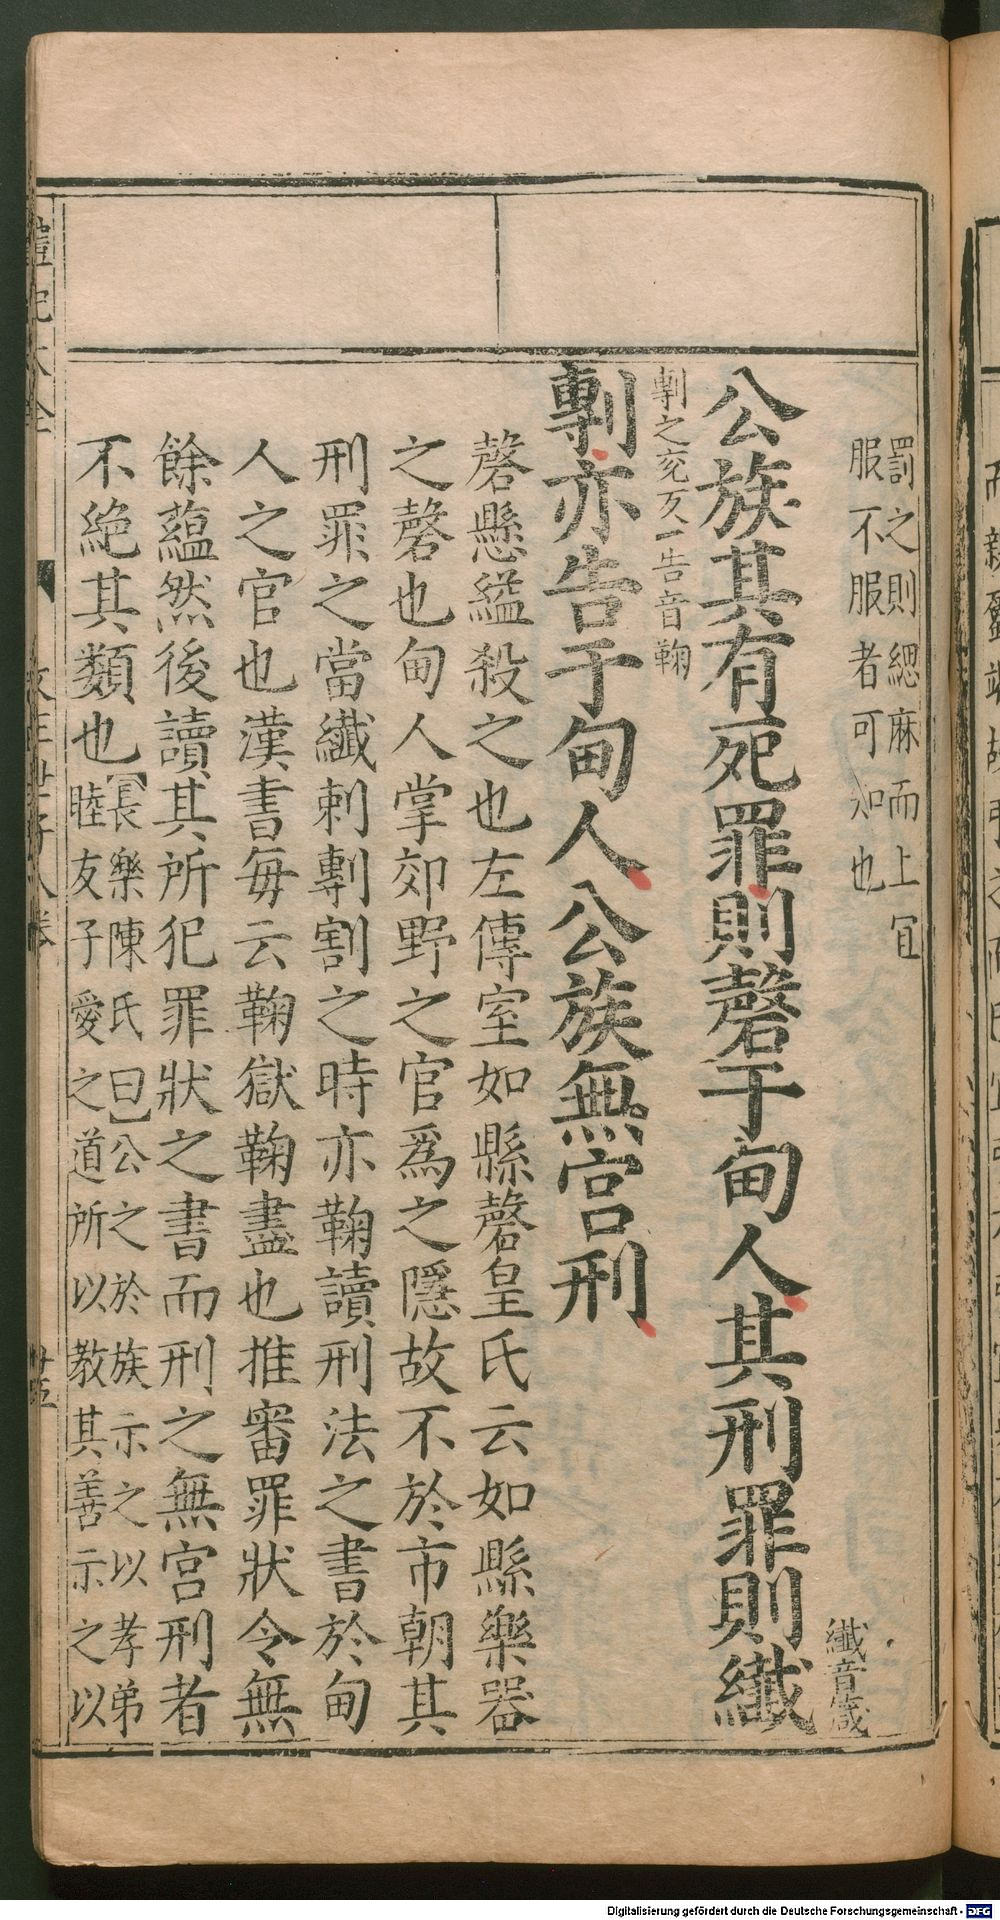 罰之則緦麻而上冝
服不服者可知也
公族其有死罪則磬于甸人其刑罪則纖
纖音箴
剸亦告于甸人公族無宫刑
剸之兗反告音鞠
磬懸縊殺之也左傳室如縣磬皇氏云如縣樂器
之磬也甸人掌郊野之官爲之隱故不於市朝其
刑罪之當纖刺剸割之時亦鞠讀刑法之書於甸
人之官也漢書每云鞠獄鞠盡也推審罪狀令無
餘蘊然後讀其所犯罪狀之書而刑之無宫刑者
不絶其類也【長樂陳氏曰】公之於族示之以孝弟
睦友子愛之道所以教其善示之以
文王世子八卷
Digitalisierung gefördert durch die Deutsche Forschungsgemeinschaft - DFG